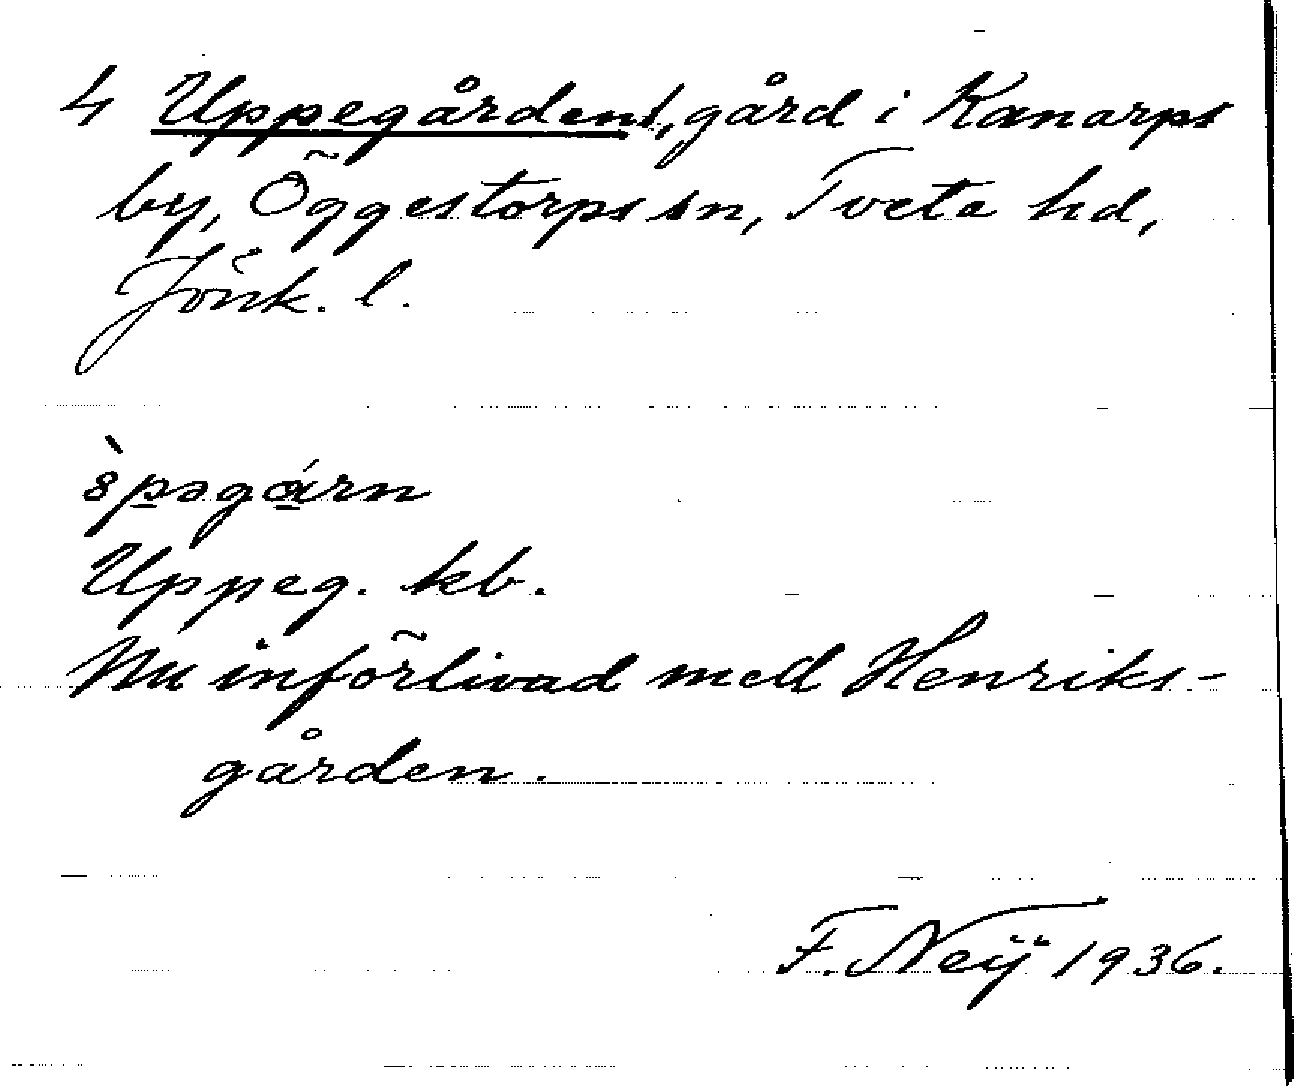 4 Uppegården, gård i Kanarps
by, Öggestorps sn, Tveta hd,
Jönk. l.
Uppeg. kb.
Nu införlivad med Henriks-
gården.
F. Neij 1936.